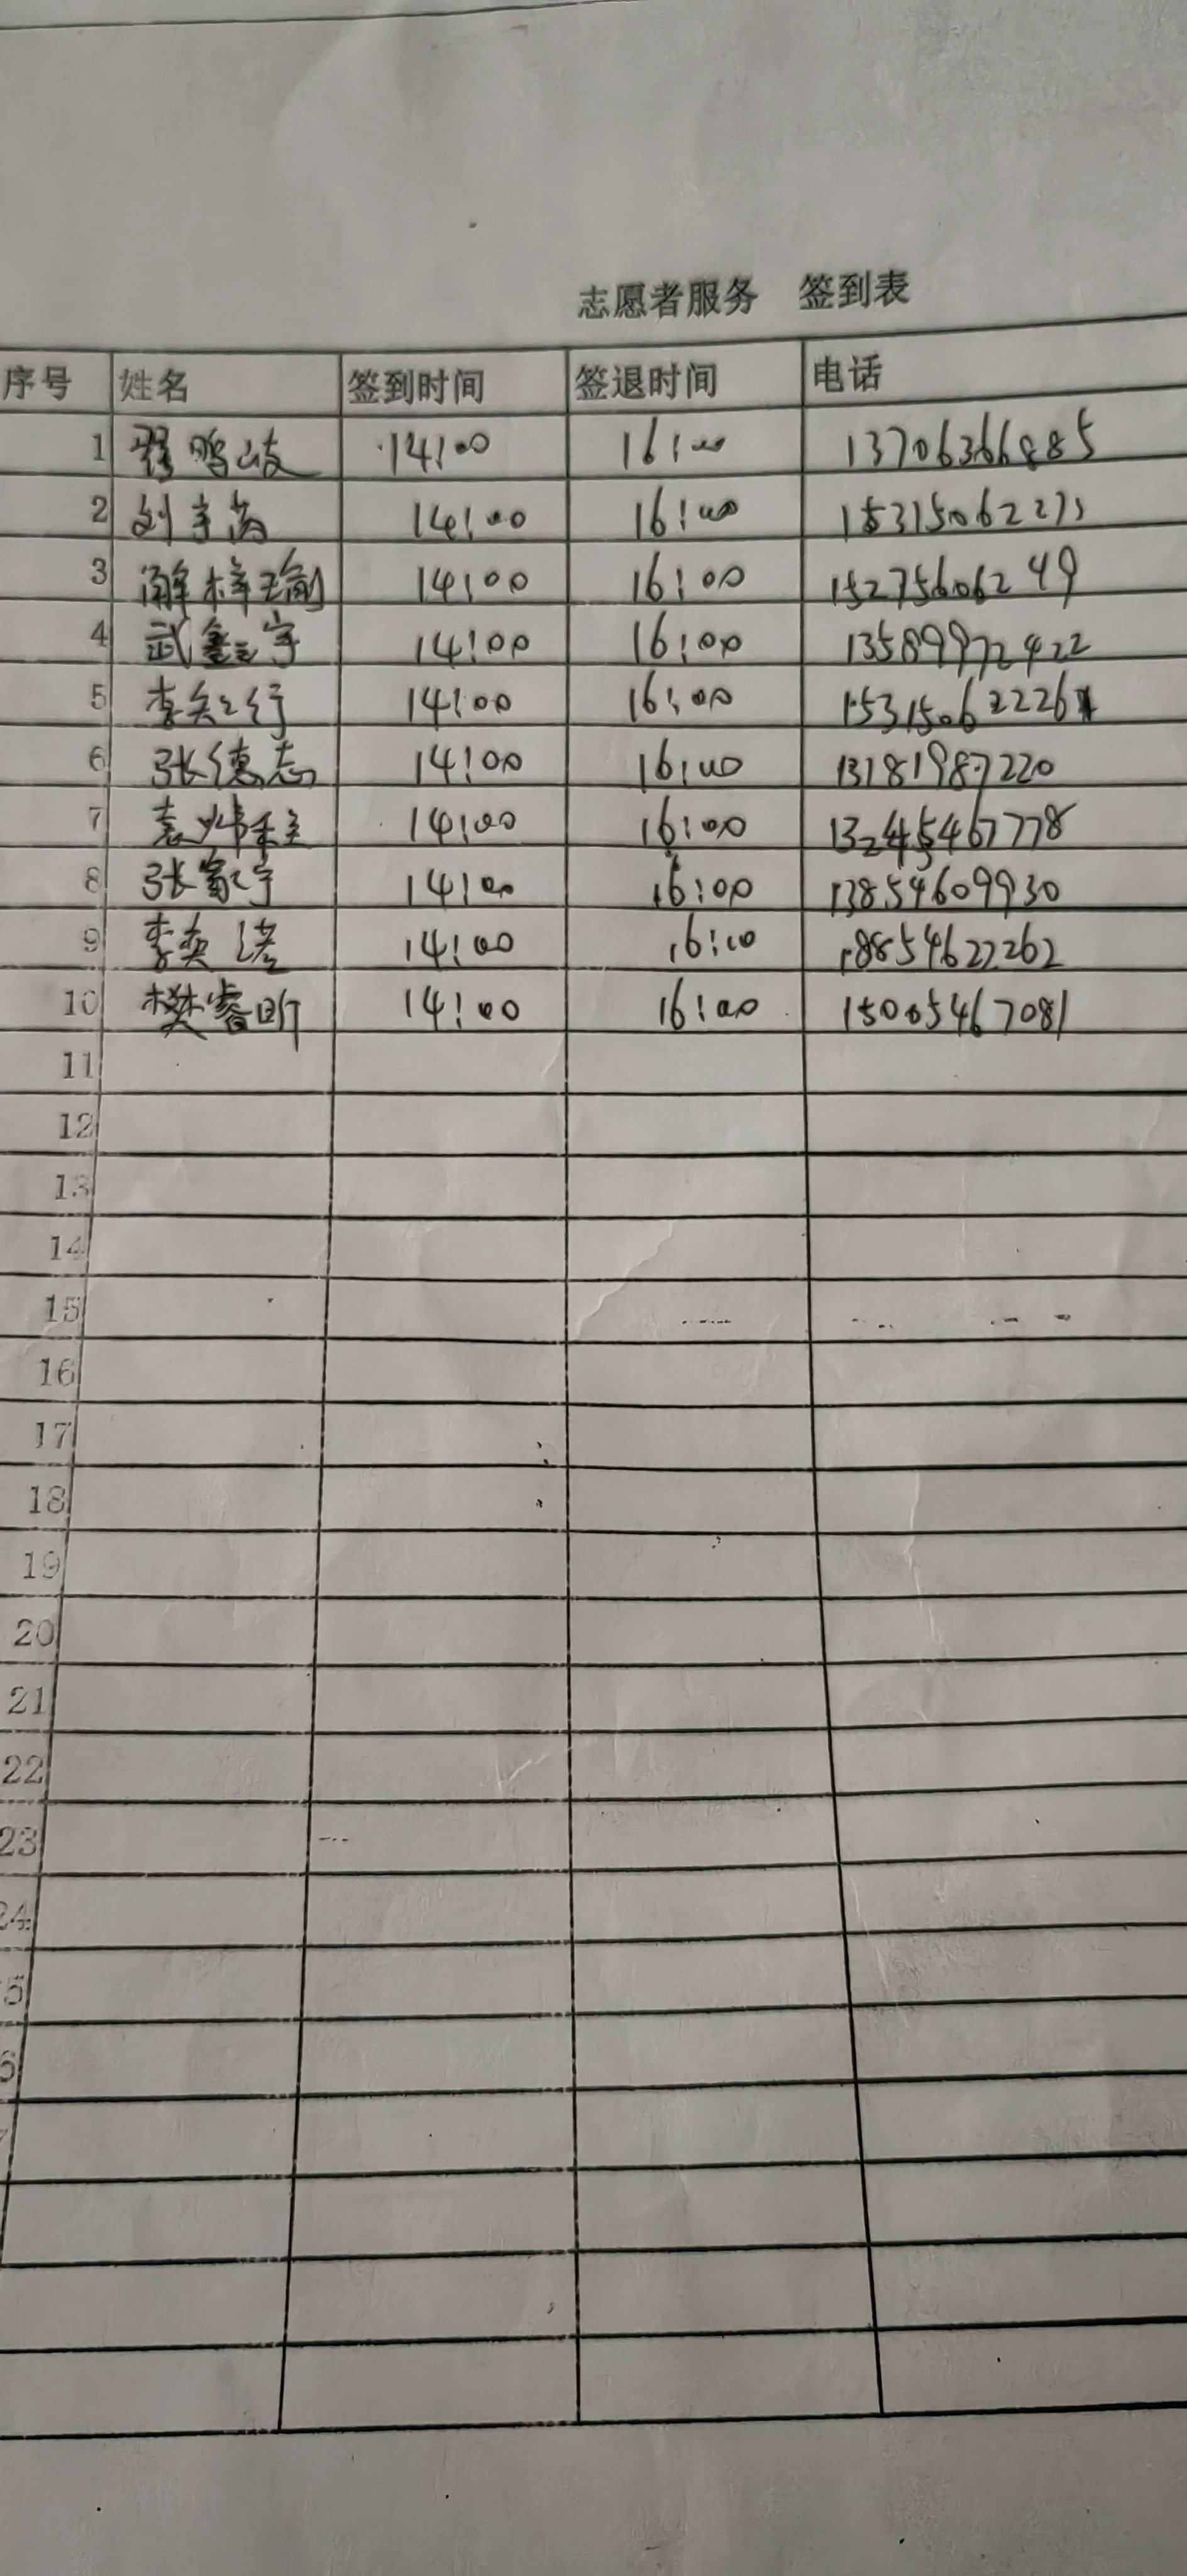 志愿者服务 签到表
序号 姓名 签到时间 签退时间 电话
1 翟鹏岐 14:00 16:00 13706366885
2 刘宇 14:00 16:00
3 解梓瑜 14:00 16:00 15275606249
4 武鑫宇 14:00 16:00 13589972422
5 李矣行 14:00 16:00 15315062226
6 张德志 14:00 16:00 13181987220
7 袁炜 14:00 16:00
8 张家宁 14:00 16:00 13854609930
9 李奕诺 14:00 16:00 18854622262
10 樊睿昕 14:00 16:00 15005467081
11
12
13
14
15
16
17
18
19
20
21
22
23
24
5
6